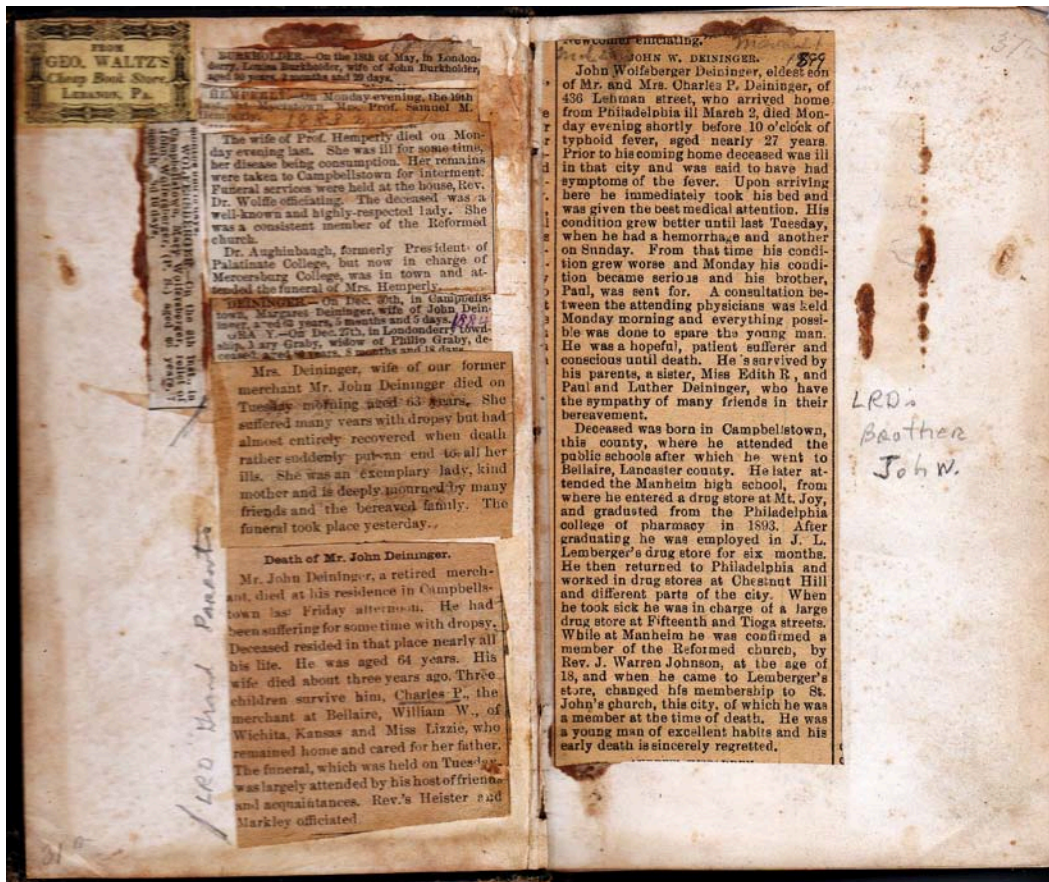 FROM
GEO. WALTZ'S
Cheap Book Store,
LEBANON, PA.
BURKHOLDER.—On the 18th of May, in London-
derry, Burkholder, wife of John Burkholder,
aged years, months and 29 days.
On Monday evening, the 19th
Prof. Samuel M.
The wife of Prof. Hemperly died on Mon-
day evening last. She was ill for some time,
her disease being consumption. Her remains
were taken to Campbellstown for interment.
Funeral services were held at the house, Rev.
Dr. Wolffe officiating. The deceased was a
well-known and highly-respected lady. She
was a consistent member of the Reformed
church.
Dr. Aughinbaugh, formerly President of
Palatinate College, but now in charge of
Mercersburg College, was in town and at-
tended the funeral of Mrs. Hemperly.
DEININGER—On Dec. 30th, in Campbells-
town, Margaret Deininger, wife of John Dein-
inger, aged 62 years, 5 months and 5 days.
GRABY.—On Dec. 27th, in Londonderry town-
ship, Mary Graby, widow of Philip Graby, de-
ceased, aged years, 8 months and 18 days.
Mrs. Deininger, wife of our former
merchant Mr. John Deininger died on
Tuesday morning aged 63 years. She
suffered many years with dropsy but had
almost entirely recovered when death
rather suddenly put an end to all her
ills. She was an exemplary lady, kind
mother and is deeply mourned by many
friends and the bereaved family. The
funeral took place yesterday.
Death of Mr. John Deininger.
Mr. John Deininger, a retired merch-
ant, died at his residence in Campbells-
town last Friday afternoon. He had
been suffering for some time with dropsy.
Deceased resided in that place nearly all
his life. He was aged 64 years. His
wife died about three years ago. Three
children survive him, Charles P., the
merchant at Bellaire, William W., of
Wichita, Kansas and Miss Lizzie, who
remained home and cared for her father.
The funeral, which was held on Tuesday
was largely attended by his host of friends
and acquaintances. Rev.'s Heister and
Markley officiated.
LRD Grand Parents
Newcomer officiating.
JOHN W. DEININGER. 1899
John Wolfsberger Deininger, eldest son
of Mr. and Mrs. Charles P. Deininger, of
436 Lehman street, who arrived home
from Philadelphia ill March 2, died Mon-
day evening shortly before 10 o'clock of
typhoid fever, aged nearly 27 years.
Prior to his coming home deceased was ill
in that city and was said to have had
symptoms of the fever. Upon arriving
here he immediately took his bed and
was given the best medical attention. His
condition grew better until last Tuesday,
when he had a hemorrhage and another
on Sunday. From that time his condi-
tion grew worse and Monday his condi-
tion became serious and his brother,
Paul, was sent for. A consultation be-
tween the attending physicians was held
Monday morning and everything possi-
ble was done to spare the young man.
He was a hopeful, patient sufferer and
conscious until death. He is survived by
his parents, a sister, Miss Edith R, and
Paul and Luther Deininger, who have
the sympathy of many friends in their
bereavement.
Deceased was born in Campbellstown,
this county, where he attended the
public schools after which he went to
Bellaire, Lancaster county. He later at-
tended the Manheim high school, from
where he entered a drug store at Mt. Joy,
and graduated from the Philadelphia
college of pharmacy in 1893. After
graduating he was employed in J. L.
Lemberger's drug store for six months.
He then returned to Philadelphia and
worked in drug stores at Chestnut Hill
and different parts of the city. When
he took sick he was in charge of a large
drug store at Fifteenth and Tioga streets.
While at Manheim he was confirmed a
member of the Reformed church, by
Rev. J. Warren Johnson, at the age of
18, and when he came to Lemberger's
store, changed his membership to St.
John's church, this city, of which he was
a member at the time of death. He was
a young man of excellent habits and his
early death is sincerely regretted.
LRD's
Brother
John W.